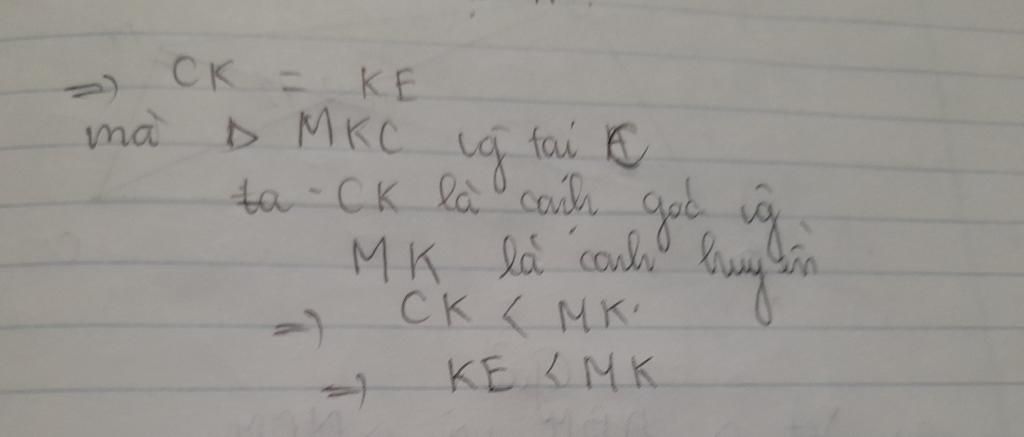 => CK = KE
mà Δ MKC vg tai C
ta CK là cạnh góc vg
MK là cạnh huyền
=> CK < MK.
=> KE < MK